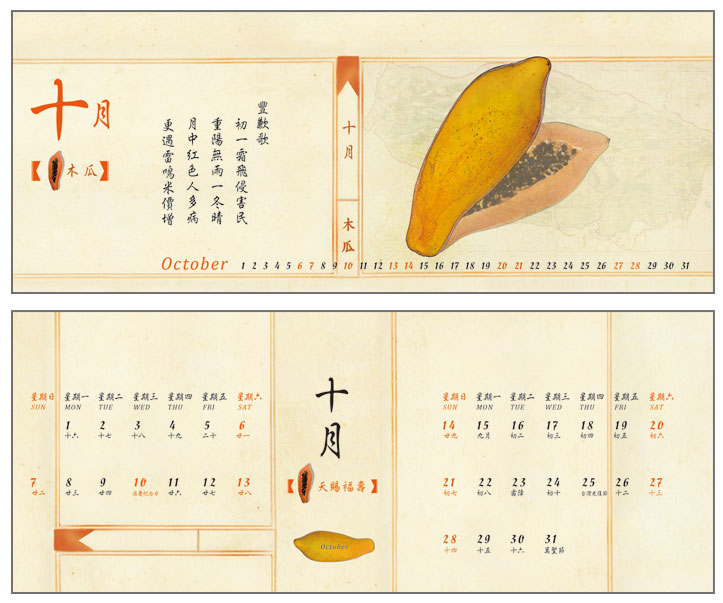 十月
【木瓜】
豐歉歌
初一霜飛侵害民
重陽無雨一冬晴
月中紅色人多病
更遇雷鳴米價增
十月
木瓜
October 1 2 3 4 5 6 7 8 9 10 11 12 13 14 15 16 17 18 19 20 21 22 23 24 25 26 27 28 29 30 31
星期日 星期一 星期二 星期三 星期四 星期五 星期六
SUN MON TUE WED THU FRI SAT
1 2 3 4 5 6
十六 十七 十八 十九 二十 廿一
7 8 9 10 11 12 13
廿二 廿三 廿四 國慶紀念日 廿六 廿七 廿八
十月
【天賜福壽】
October
星期日 星期一 星期二 星期三 星期四 星期五 星期六
SUN MON TUE WED THU FRI SAT
14 15 16 17 18 19 20
廿九 九月 初二 初三 初四 初五 初六
21 22 23 24 25 26 27
初七 初八 霜降 初十 台灣光復節 十二 十三
28 29 30 31
十四 十五 十六 萬聖節